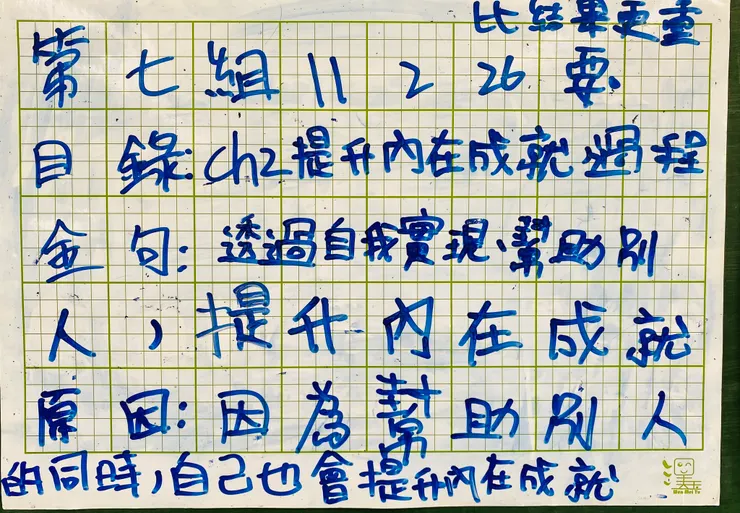 比結果更重
第七組 11 2 26 要
目錄:ch2提升內在成就過程
金句:透過自我實現、幫助別
人，提升內在成就
原因:因為幫助別人
的同時，自己也會提升內在成就